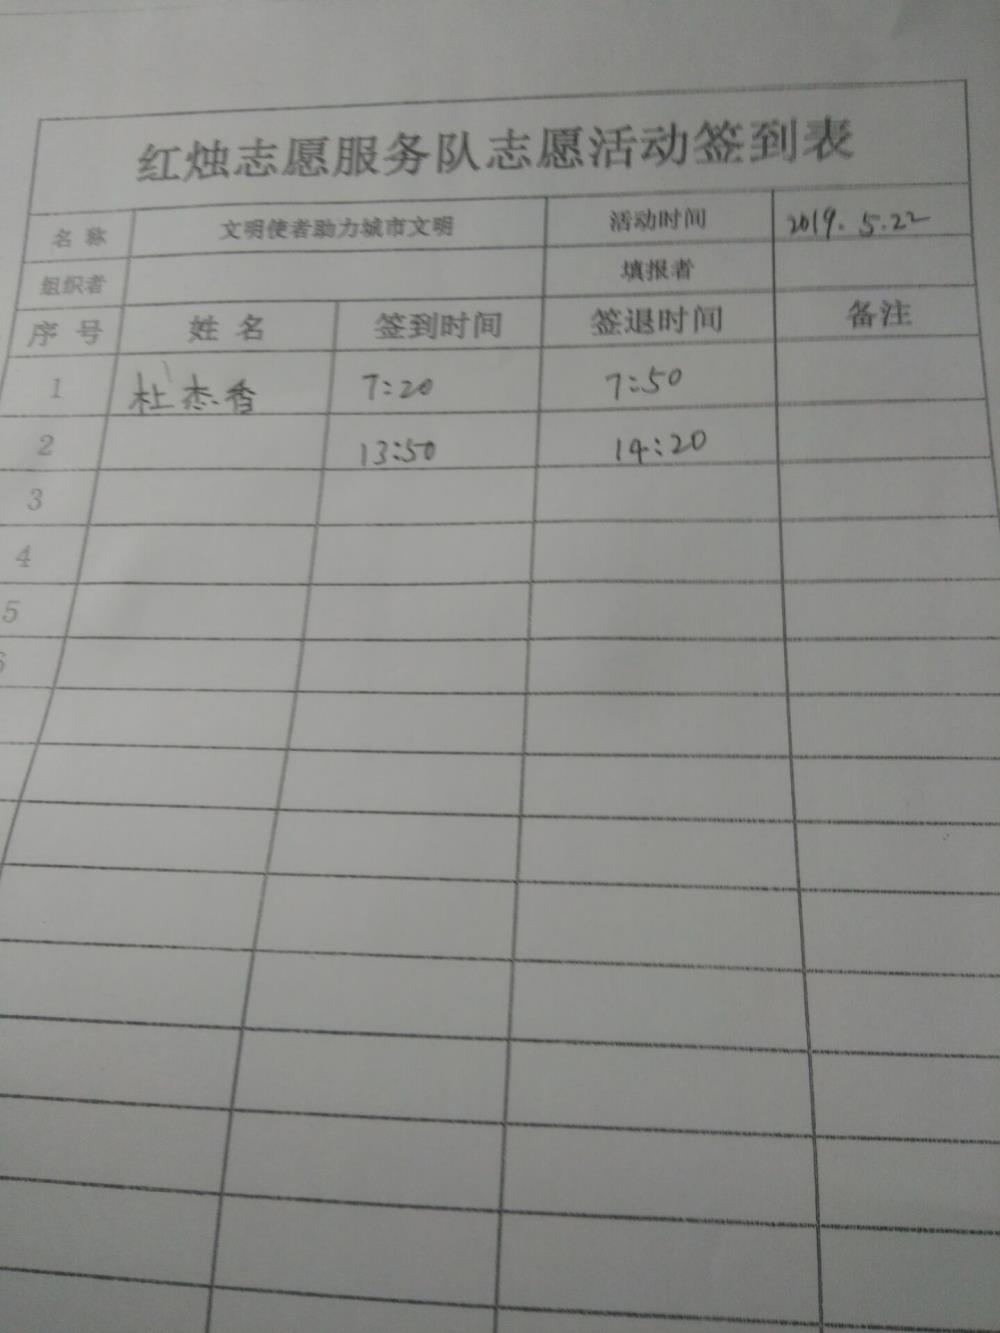 红烛志愿服务队志愿活动签到表
名 称 文明使者助力城市文明 活动时间 2019.5.22
组织者 填报者
序 号 姓 名 签到时间 签退时间 备注
1 杜杰香 7:20 7:50
2 13:50 14:20
3
4
5
6